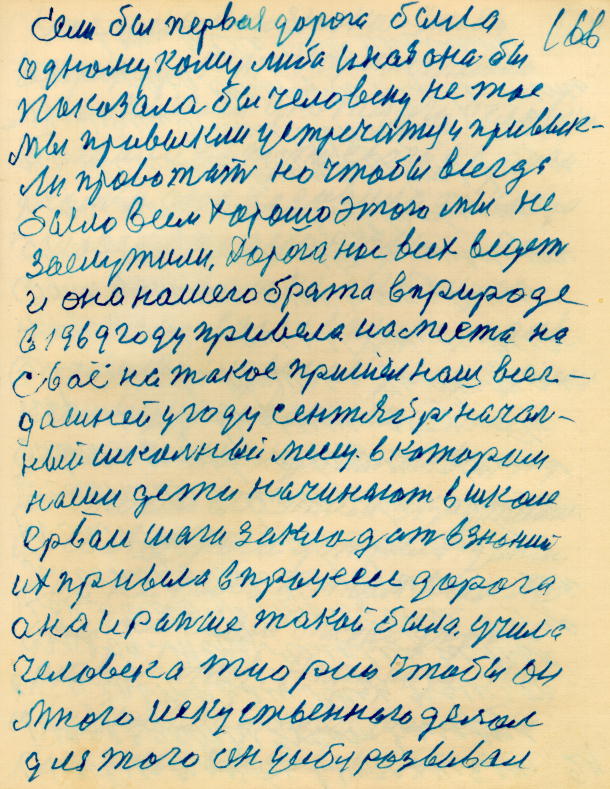 Если бы первая дорога была 166
одному кому либа иная она бы
показала бы человеку не тое
мы привыкли устречатя и привык-
ли провожат но чтобы всегда
было всем хорошо этого мы не
заслужили. Дорога нас всех ведет
и она нашего брата в природе
в 1969 году привела на места на
своё на такое пришёл наш всег-
дашней у году сентябр начал-
ный школный месц. в котором
наши дети начинают в школе
шаги закладат в знаний
их привела в процесси дорога
она и раньше такой была. учила
человека тиорию чтобы он
много искуственного делал
для того он учебу розвивал